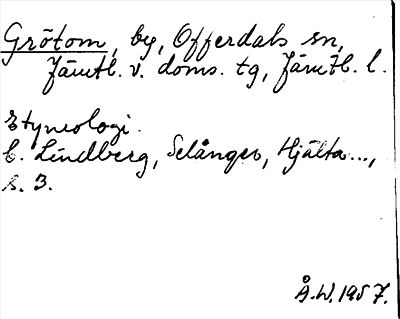 Grötom, by, Offerdals sn,
Jämtl. v. doms. tg, Jämtl. l.
Etymologi.
C. Lindberg, Selånger, Hjälta...,
s. 3.
Å.W. 1957.